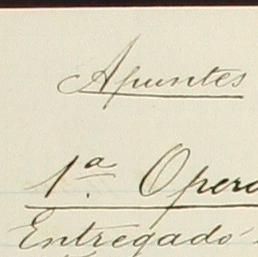 Apuntes
1.ª Opera
Entregado